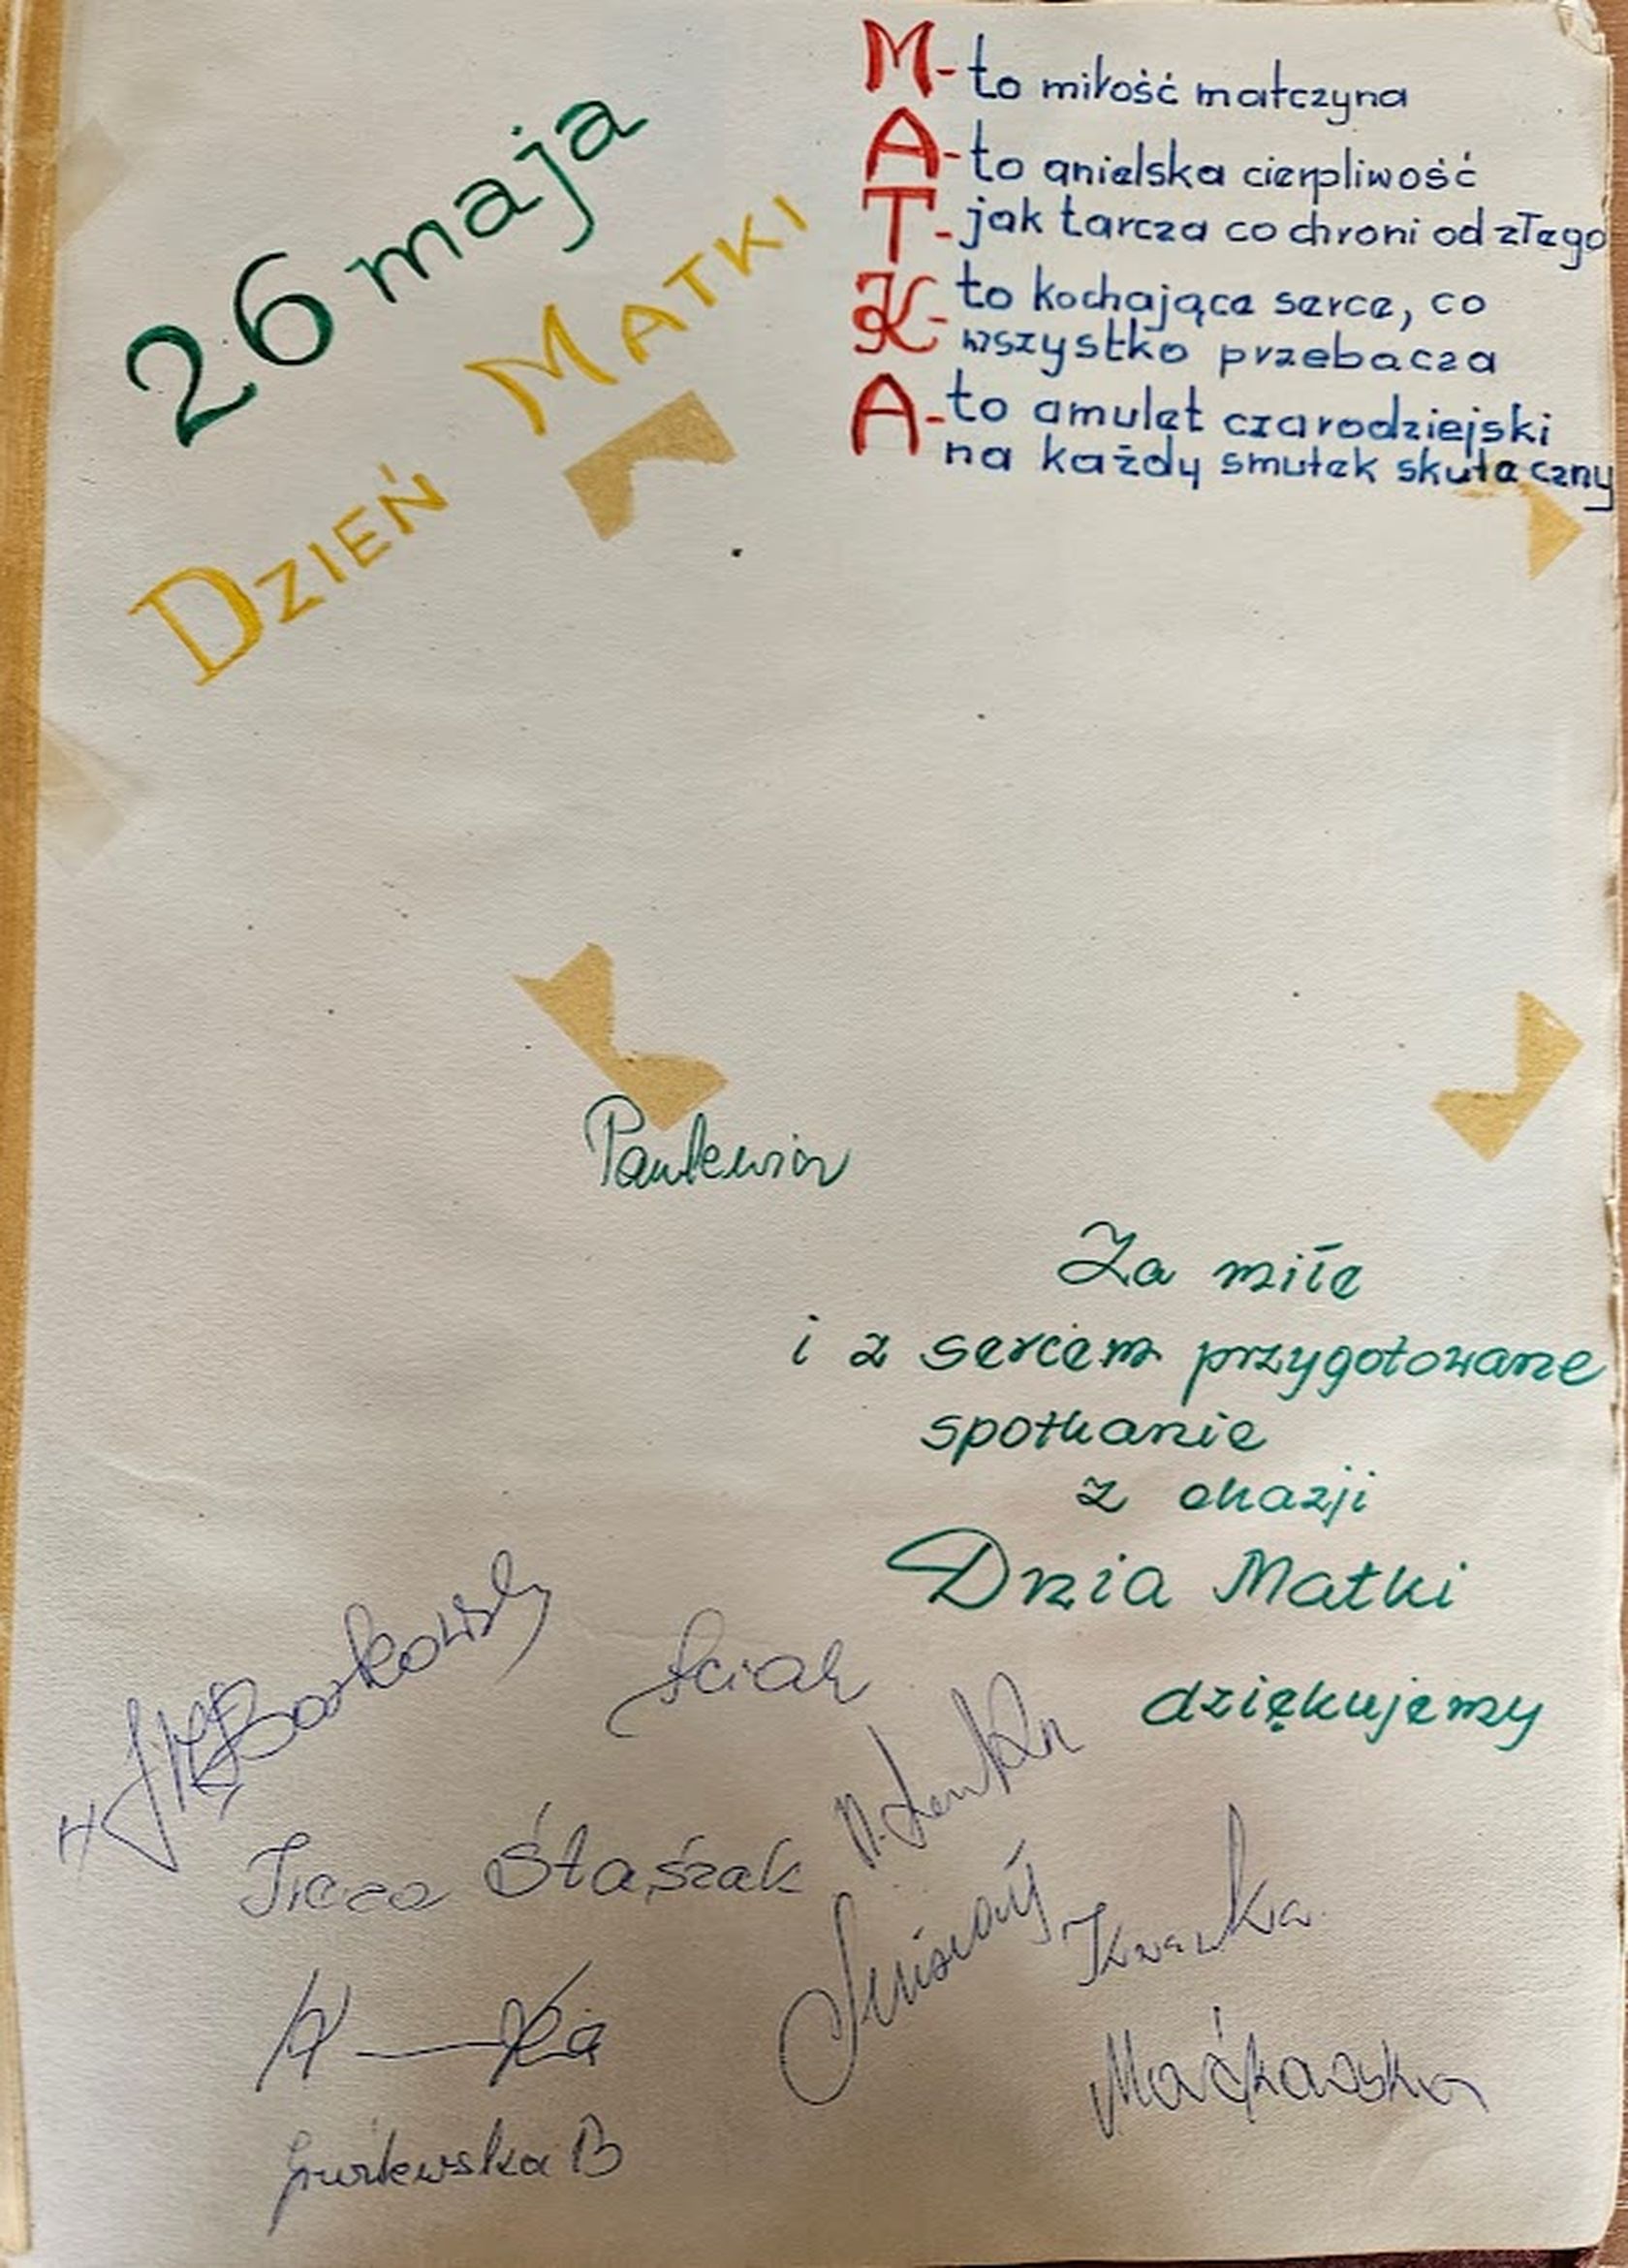 26 maja
DZIEŃ MATKI
M - to miłość matczyna
A - to anielska cierpliwość
T - jak tarcza co chroni od złego
K - to kochające serce, co
wszystko przebacza
A - to amulet czarodziejski
na każdy smutek skuteczny
Za miłe
i z sercem przygotowane
spotkanie
z okazji
Dnia Matki
dziękujemy
Staszak
Maćkowska